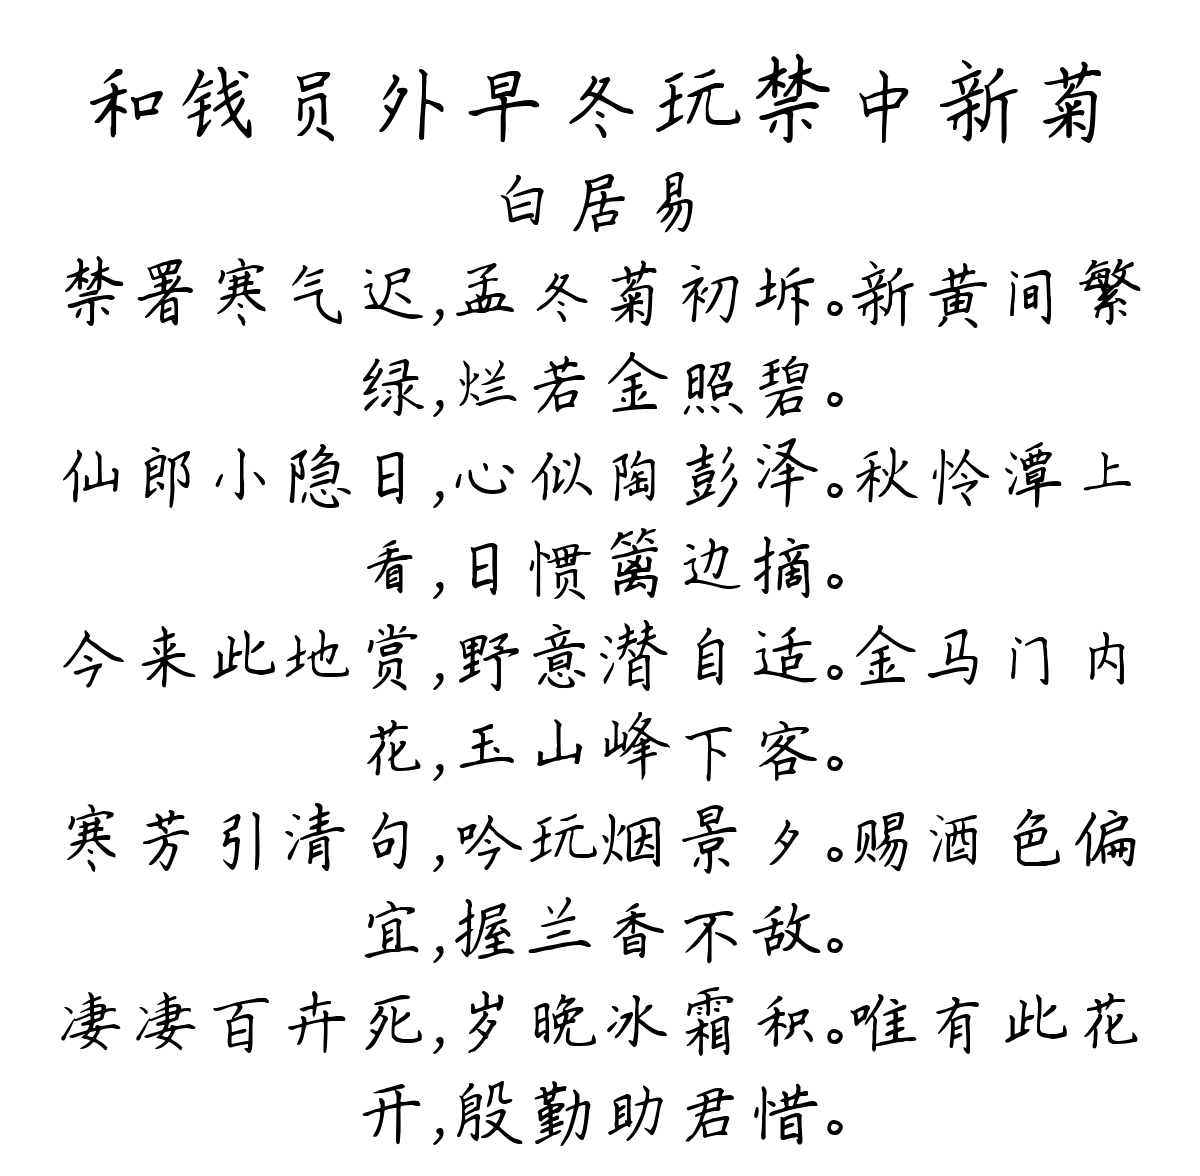 和钱员外早冬玩禁中新菊
白居易
禁署寒气迟,孟冬菊初坼。新黄间繁
绿,烂若金照碧。
仙郎小隐日,心似陶彭泽。秋怜潭上
看,日惯篱边摘。
今来此地赏,野意潜自适。金马门内
花,玉山峰下客。
寒芳引清句,吟玩烟景夕。赐酒色偏
宜,握兰香不敌。
凄凄百卉死,岁晚冰霜积。唯有此花
开,殷勤助君惜。